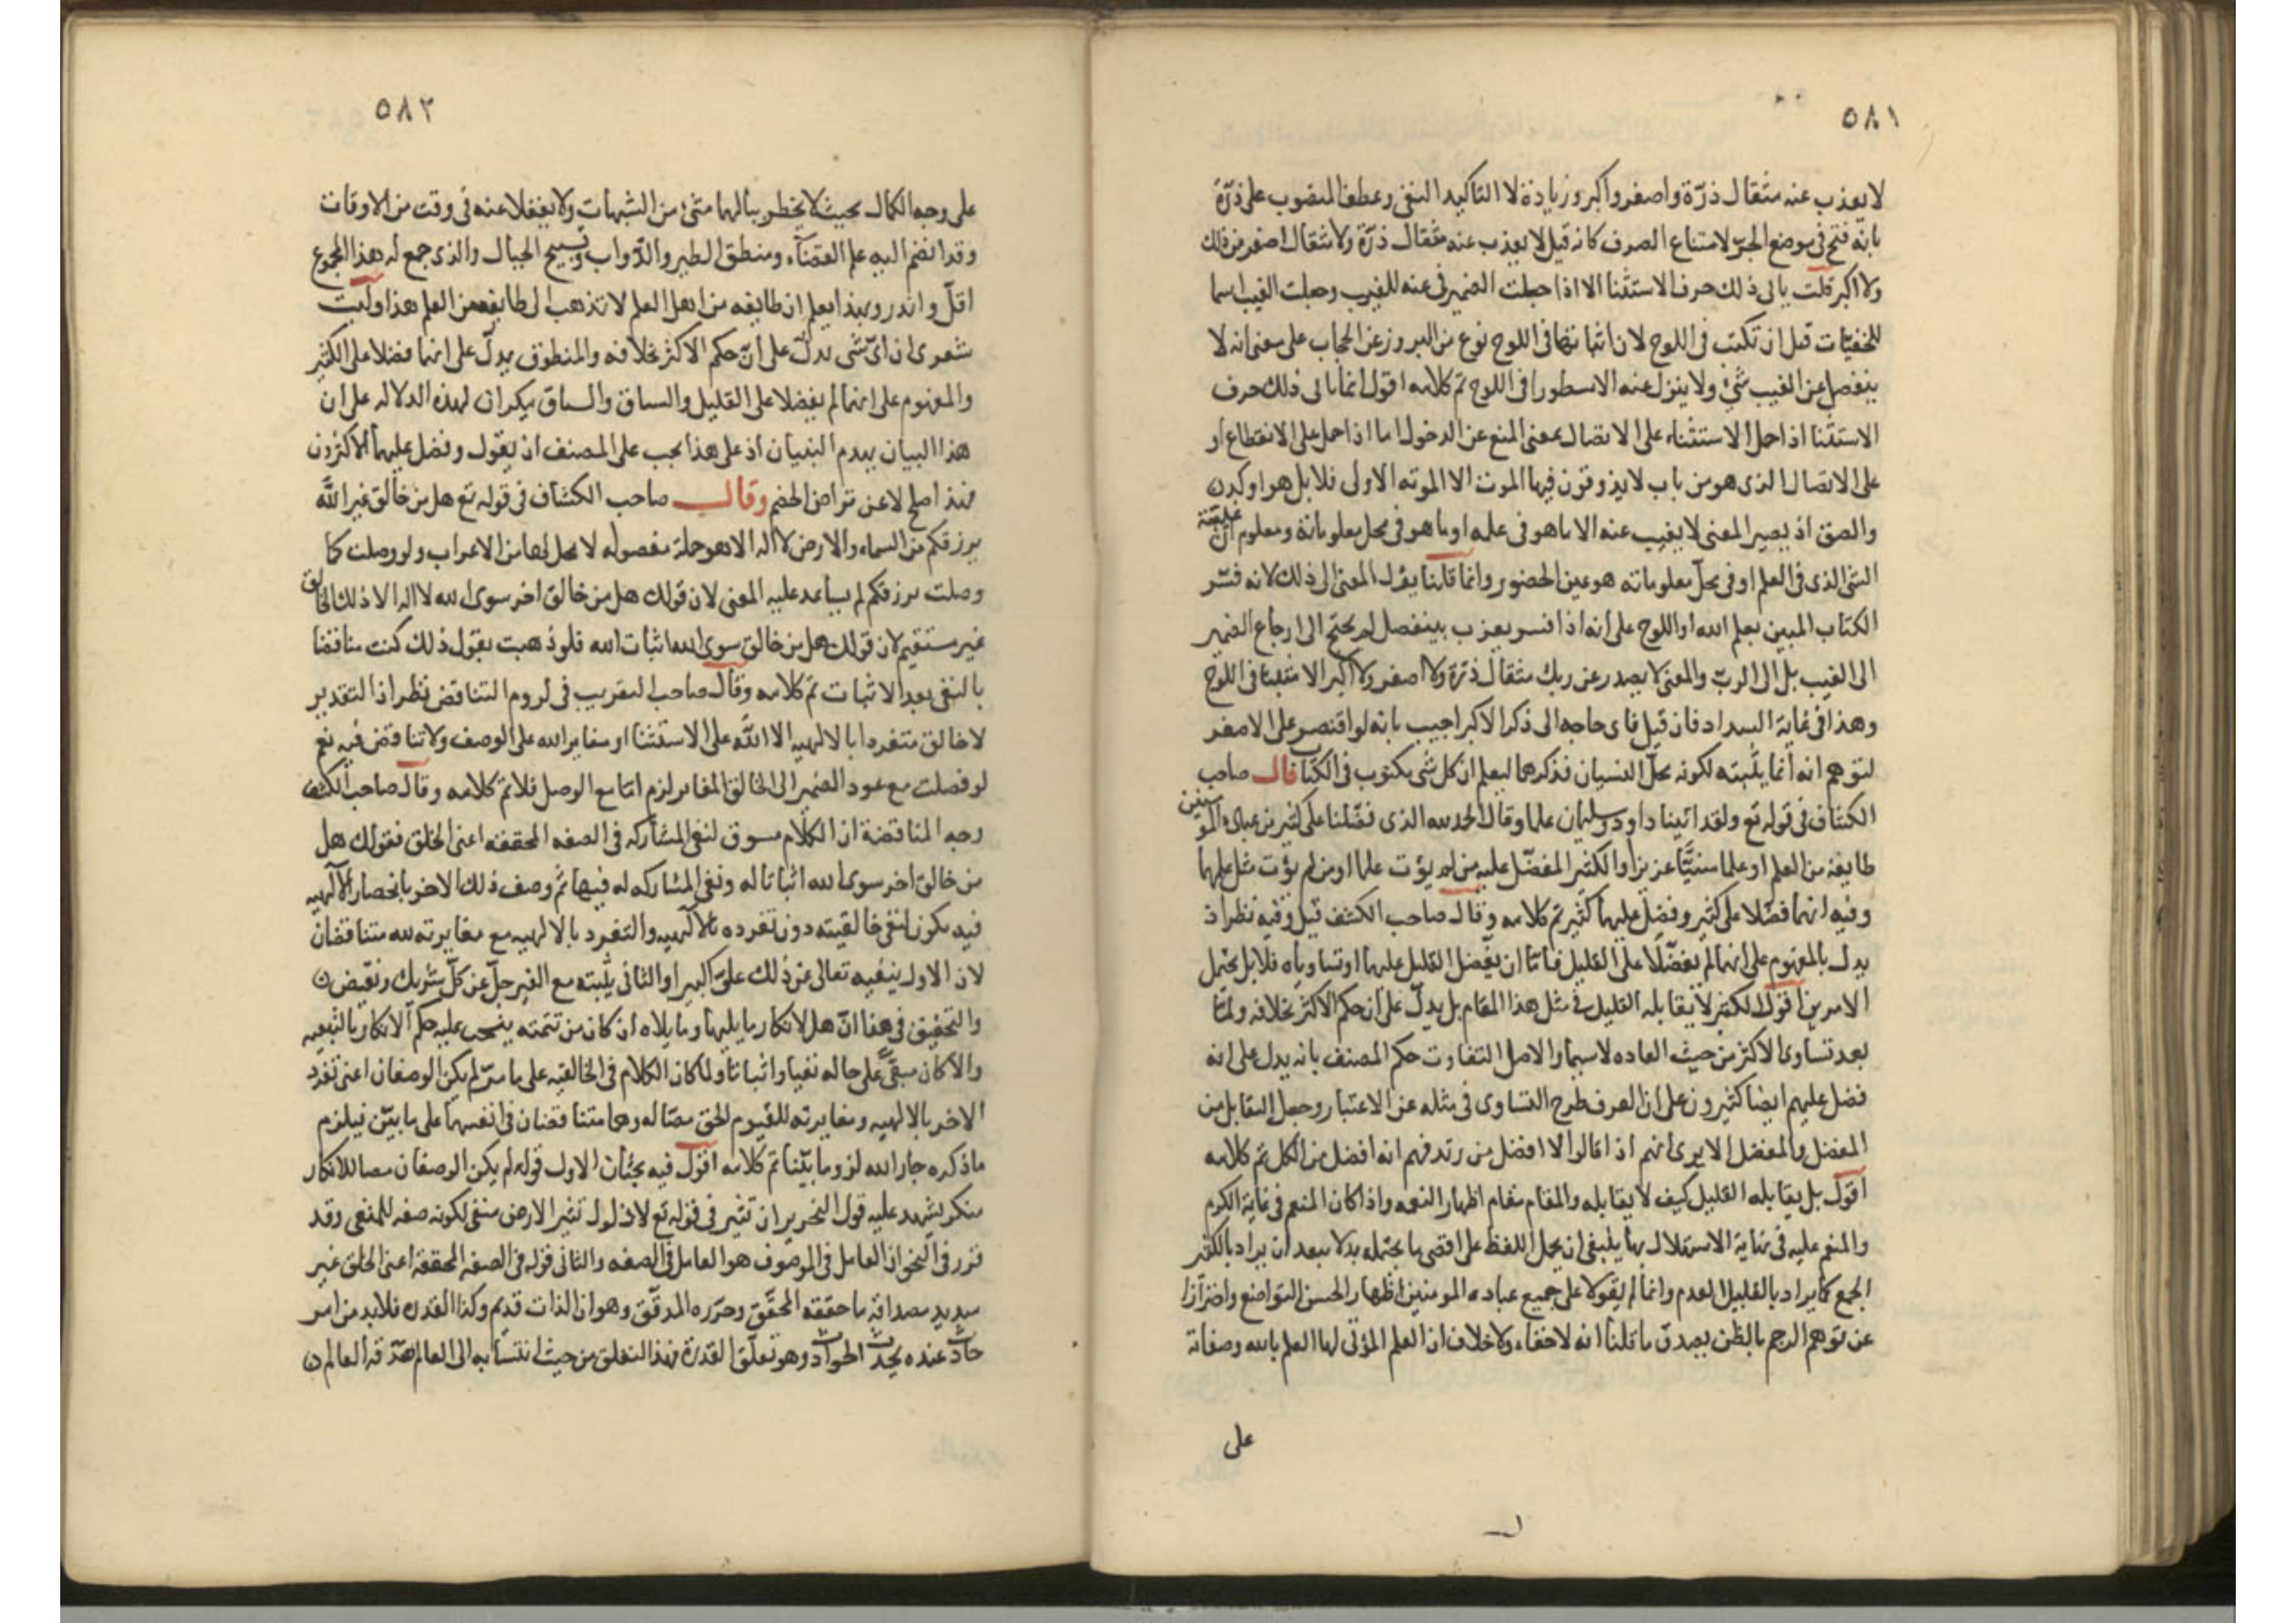 ٥٨١
لا يعزب عنه مثقال ذرّة واصغر واكبر وزيادة لا التاكيد النفى وعطف المنصوب على ذرّة
بانه فتح فى موضع الجرّ لامتناع الصرف كانه قيل لا يعزب عنه مثقال ذرّة ولا مثقال اصغر من ذلك
ولا اكبر قلت يابى ذلك حرف الاستثنا الا اذا جعلت الضمير فى عنه للغيب وجعلت الغيب اسما
للخفيّات قبل ان تكتب فى اللوح لان اثباتها فى اللوح نوع من البروز عن الحجاب على معنى انه لا
ينفصل عن الغيب شئ ولا ينزل عنه الا مسطورا فى اللوح تم كلامه اقول انما يابى ذلك حرف
الاستثنا اذا حمل الاستثناء على الاتصال بمعنى المنع عن الدخول اما اذا حمل على الانقطاع او
على الاتصال الذى هو من باب لا يذوقون فيها الموت الا الموتة الاولى فلا بل هو اوكد
والصق اذ يصير المعنى لا يغيب عنه الا ما هو فى علمه او ما هو فى محل معلوماته ومعلوم ان غيبة
الشئ الذى فى العلم او فى محلّ معلوماته هو عين الحضور وانما قلنا يؤل المعنى الى ذلك لانه فسّر
الكتاب المبين بعلم الله او اللوح على انه اذا فسر يعزب بينفصل لم يحتج الى ارجاع الضمير
الى الغيب بل الى الربّ والمعنى لا يصدر عن ربك مثقال ذرّة ولا اصغر ولا اكبر الا مثبتا فى اللوح
وهذا فى غاية السداد فان قيل فاى حاجه الى ذكر الاكبر اجيب بانه لو اقتصر على الاصغر
لتوهم انه انما يثبته لكونه محلّ النسيان فذكرهما ليعلم ان كل شى مكتوب فى الكتاب قال صاحب
الكشاف فى قوله تع ولقد اتينا داود وسليمان علما وقالا الحمد لله الذى فضّلنا على كثير من عباده المؤمنين
طايفة من العلم او علما سنيّا عزيزا والكثير المفضّل عليه من لم يؤت علما او من لم يؤت مثل علمهما
وفيه انهما فضّلا على كثير وفضل عليهما كثير تم كلامه وقال صاحب الكشف قيل وفيه نظر اذ
يدل بالمفهوم على انهما لم يفضّلا على القليل فامّا ان يفضل القليل عليهما او تساوياه فلا بل يحتمل
الامرين اقول الكثير لا يقابله القليل فى مثل هذا المقام بل يدلّ على ان حكم الاكثر بخلافه ولما
بعد تساوى الاكثر من حيث العاده لا سيما والاصل التفاوت حكم المصنف بانه يدل على انه
فضل عليهم ايضا كثيرون على ان العرف طرح التساوى فى مثله عن الاعتبار وجعل التقابل بين
المفضل والمفضل الا يرى انهم اذا قالوا لا افضل من زيد فهم انه افضل من الكل تم كلامه
اقول بل يقابله القليل كيف لا يقابله والمقام مقام اظهار النعمه واذا كان المنعم فى غاية الكرم
والمنعم عليه فى نهاية الاستهلال بها ينبغى ان يحمل اللفظ على اقصى ما يحتمله بدلا يبعد ان يراد بالكثير
الجمع كما يراد بالقليل العدم وانما لم يقولا على جميع عباده المومنين اظهار الحسن التواضع واحترازا
عن توهم الرجم بالظن يصدق ما قلنا انه لا خفاء ولا خلاف ان العلم المؤتى لهما العلم بالله وصفاته
على
٥٨٢
على وجه الكمال بحيث لا يخطر ببالهما شئ من الشبهات ولا يغفلا عنه فى وقت من الاوقات
وقد انضم اليه علم القضاء ومنطق الطير والدّواب وتسبيح الجبال والذى جمع له هذا المجموع
اقلّ واندر وبهذا يعلم ان طايفه من اهل العلم لا تذهب الى طايفه من العلم هذا وليت
شعرى ان اىّ شى يدلّ على انّ حكم الاكثر بخلافه والمنطوق يدلّ على انهما فضلا على الكثير
والمفهوم على انهما لم يفضلا على القليل والسباق والسياق ينكران لهذه الدلاله على ان
هذا البيان يهدم البنيان اذ على هذا يجب على المصنف ان يقول وفضل عليهما الاكثرون
فهذا صلح لا عن تراضى الخصم وقال صاحب الكشاف فى قوله تع هل من خالق غير الله
يرزقكم من السماء والارض لا اله الا هو جملة مفصوله لا محل لها من الاعراب ولو وصلت كما
وصلت يرزقكم لم يساعد عليه المعنى لان قولك هل من خالق اخر سوى الله لا اله الا ذلك الخالق
غير مستقيم لان قولك هل من خالق سوى الله اثبات الله فلو ذهبت بقول ذلك كنت مناقضا
بالنفى بعد الاثبات تم كلامه وقال صاحب التقريب فى لزوم التناقض نظر اذ التقدير
لا خالق متفردا بالالهيه الا الله على الاستثنا او مغاير الله على الوصف ولا تناقض فيه نعم
لو فصلت مع عود الضمير الى الخالق المغاير لزم امّا مع الوصل فلا تم كلامه وقال صاحب الكشف
وجه المناقضة ان الكلام مسوق لنفى المشاركه فى الصفه المحققه اعنى الخلق فقولك هل
من خالق اخر سوى الله اثباتا له ونفى المشاركه له فيها ثم وصف ذلك الاخر بانحصار الالهيه
فيه يكون لنفى خالقيته دون تفرده بالالهيه والتفرد بالالهيه مع مغايرته لله متناقضان
لان الاول ينفيه تعالى عن ذلك علوّا كبيرا والثانى يثبته مع الغير جلّ عن كلّ شريك ونقيض
والتحقيق فى هذا انّ هل لانكار ما يليها وما يلاه ان كان من تتمته ينسحب عليه حكم الانكار بالتبعيه
والا كان مبقىً على حاله نفيا واثباتا ولما كان الكلام فى الخالقيه على ما مرّ لم يكن الوصفان اعنى تفرد
الاخر بالالهيه ومغايرته للقيوم الحق مصبّا له وهما متناقضان فى انفسهما على ما بيّن فيلزم
ما ذكره جار الله لزوما بيّنا تم كلامه اقول فيه بحثان الاول قوله لم يكن الوصفان مصبا للانكار
منكر يشهد عليه قول النحرير ان تثير فى قوله تع لا ذلول تثير الارض منفى لكونه صفه للمنفى وقد
قرر فى النحو ان العامل فى الموصوف هو العامل فى الصفه والثانى قوله فى الصفه المحققه اعنى الخلق غير
سديد مصداقه ما حققه المحقّق وحرّره المدقّق وهو ان الذات قديم وكذا القدره فلا بد من امر
حادث عنده يحدث الحوادث وهو تعلق القدرة فهذا التعلق من حيث انتسابه الى العالم صدقه العالم